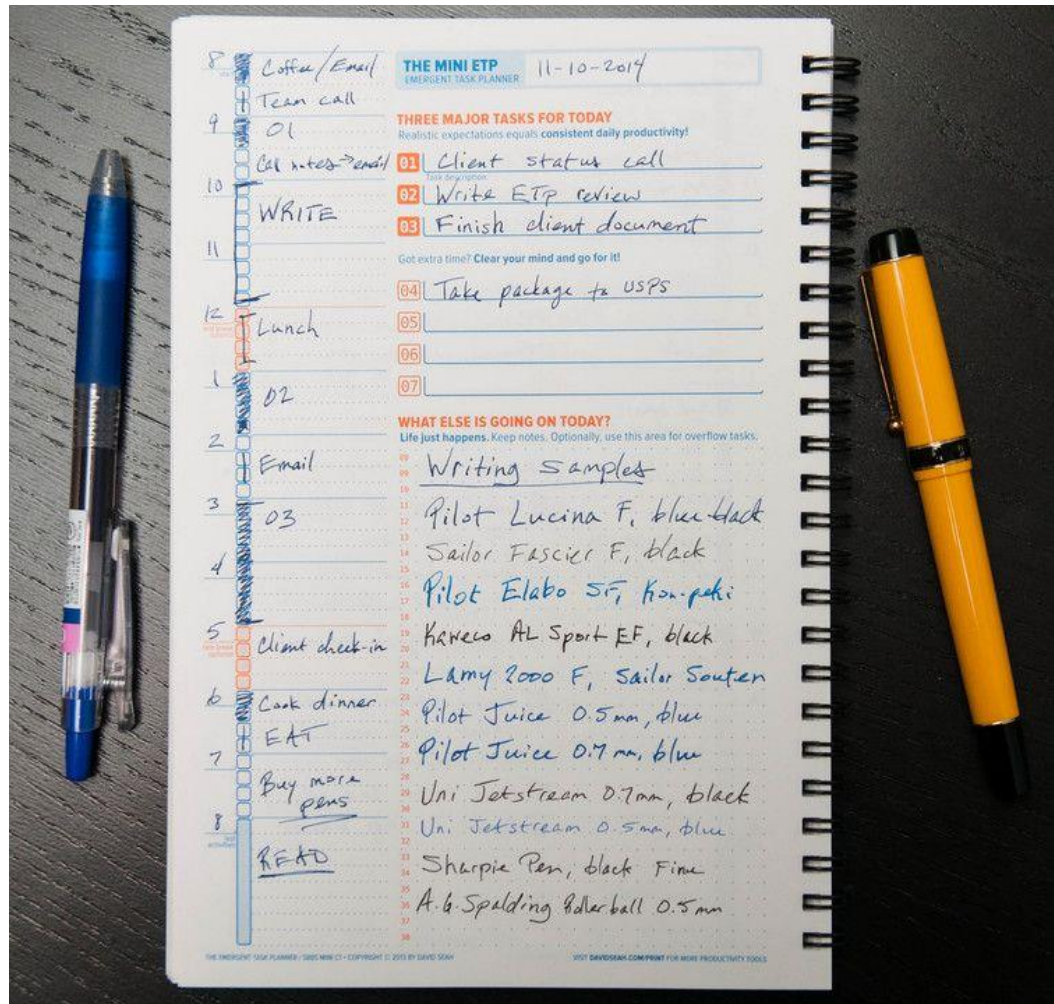 8 Coffee/Email
Team call
9 01
Call notes → email
10
WRITE
11
12 Lunch
1
02
2
Email
3
03
4
5
Client check-in
6 Cook dinner
EAT
7
Buy more
pens
8
READ
THE MINI ETP
EMERGENT TASK PLANNER
11-10-2014
THREE MAJOR TASKS FOR TODAY
Realistic expectations equals consistent daily productivity!
01 Client status call
Task description
02 Write ETP review
03 Finish client document
Got extra time? Clear your mind and go for it!
04 Take package to USPS
05
06
07
WHAT ELSE IS GOING ON TODAY?
Life just happens. Keep notes. Optionally, use this area for overflow tasks.
Writing Samples
Pilot Lucina F, blue-black
Sailor Fascier F, black
Pilot Elabo SF, Kon-peki
Kaweco AL Sport EF, black
Lamy 2000 F, Sailor Souten
Pilot Juice 0.5mm, blue
Pilot Juice 0.7mm, blue
Uni Jetstream 0.7mm, black
Uni Jetstream 0.5mm, blue
Sharpie Pen, black Fine
A.G. Spalding Rollerball 0.5mm
THE EMERGENT TASK PLANNER / 5885 MINI C1 • COPYRIGHT © 2013 BY DAVID SEAH
VISIT DAVIDSEAH.COM/PRINT FOR MORE PRODUCTIVITY TOOLS